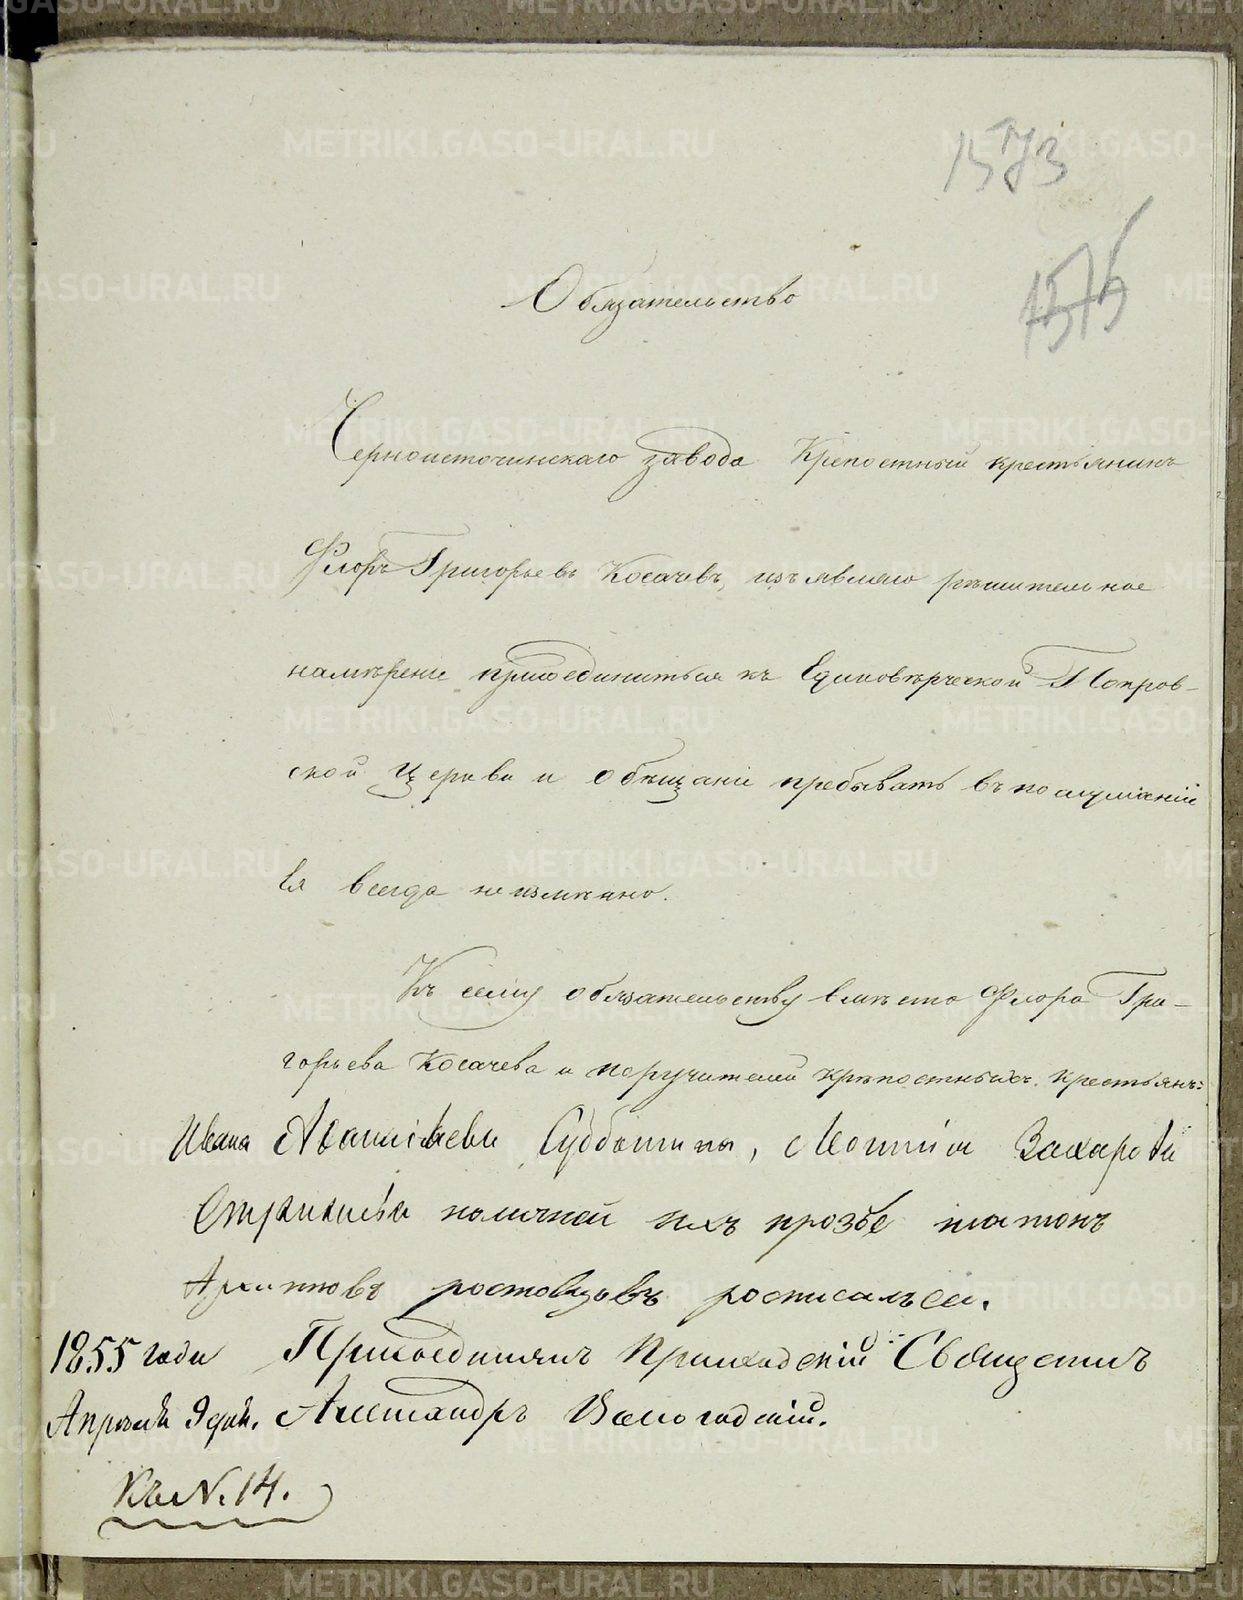 1573
1575
Обязательство
Черноисточинскаго завода Крепостный крестьянинъ
Флоръ Григорьевъ Косачевъ, изъявляю рѣшительное
намѣреніе присоединиться къ Единовѣрческой Покров-
ской Церкви и обѣщаніе пребывать въ послушаніи
Ея всегда неизмѣнно.
Къ сему обязательству вмѣсто Флора Гри-
горьева Косачева и поручителей крѣпостныхъ крестьянъ:
Ивана Субботина, Захарова
поличной ихъ прозбе платонъ
Архиповъ ростовцовъ росписалъся.
1855 года Присоединялъ Приходскій Священникъ
Апреля 9 дня. Александръ Вологодскій.
Къ N. 14.
METRIKI.GASO-URAL.RU